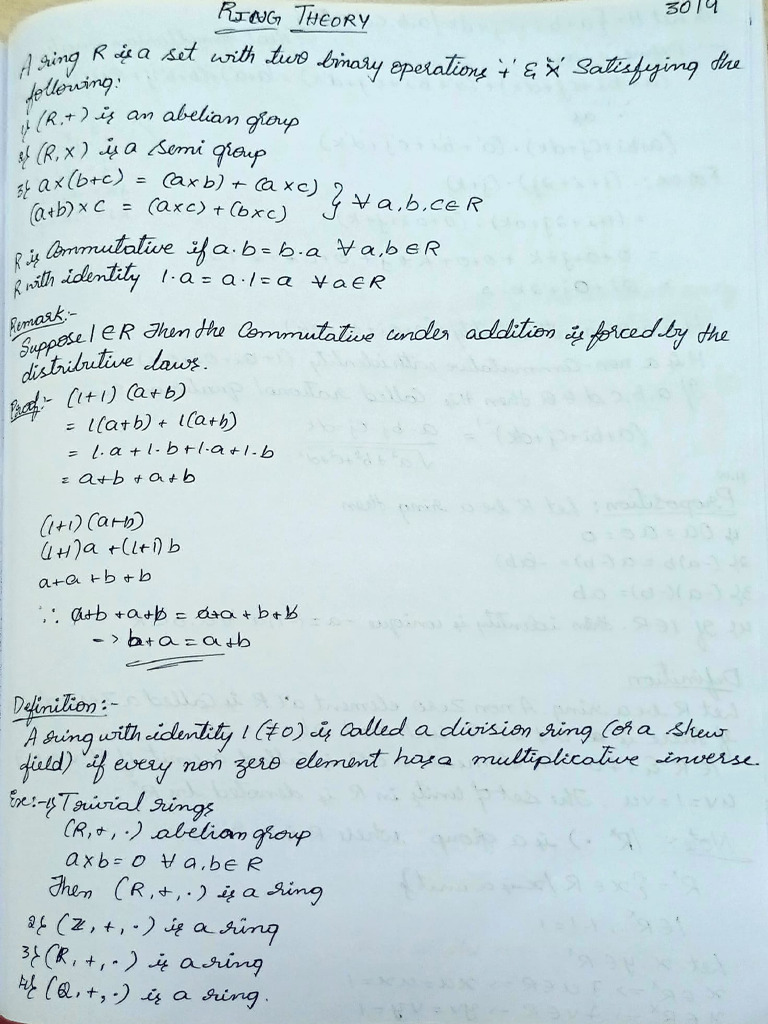 RING THEORY
30/9
A ring R is a set with two binary operations '+' & '×' Satisfying the
following:
1} (R,+) is an abelian group
2} (R,×) is a Semi group
3} a×(b+c) = (a×b) + (a×c)
(a+b)×c = (a×c) + (b×c) } ∀ a,b,c∈R
R is Commutative if a·b = b·a ∀ a,b∈R
R with identity 1·a = a·1 = a ∀ a∈R
Remark:-
Suppose 1∈R Then the Commutative under addition is forced by the
distributive laws.
Proof:- (1+1) (a+b)
= 1(a+b) + 1(a+b)
= 1·a + 1·b + 1·a + 1·b
= a+b + a+b
(1+1) (a+b)
(1+1)a + (1+1)b
a+a + b+b
∴ a+b + a+b = a+a + b+b
-> b+a = a+b
Definition:-
A ring with identity 1 (≠0) is called a division ring (or a skew
field) if every non zero element has a multiplicative inverse.
Ex:- 1} Trivial rings
(R,+,·) abelian group
a×b = 0 ∀ a,b∈R
Then (R,+,·) is a ring
2} (Z,+,·) is a ring
3} (R,+,·) is a ring
4} (Q,+,·) is a ring.